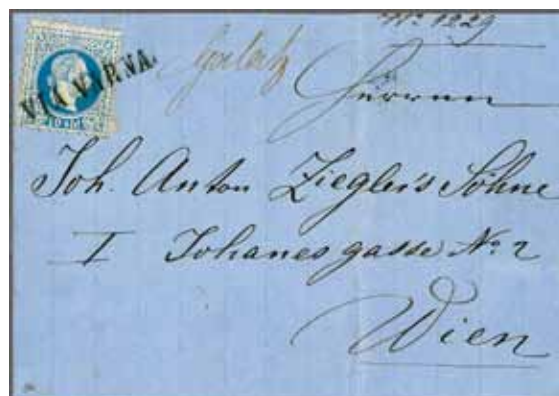 No. 1229
VIA VARNA.
Galatz
Herrn
Joh. Anton Ziegler's Söhne
I Johanesgasse No. 2
Wien